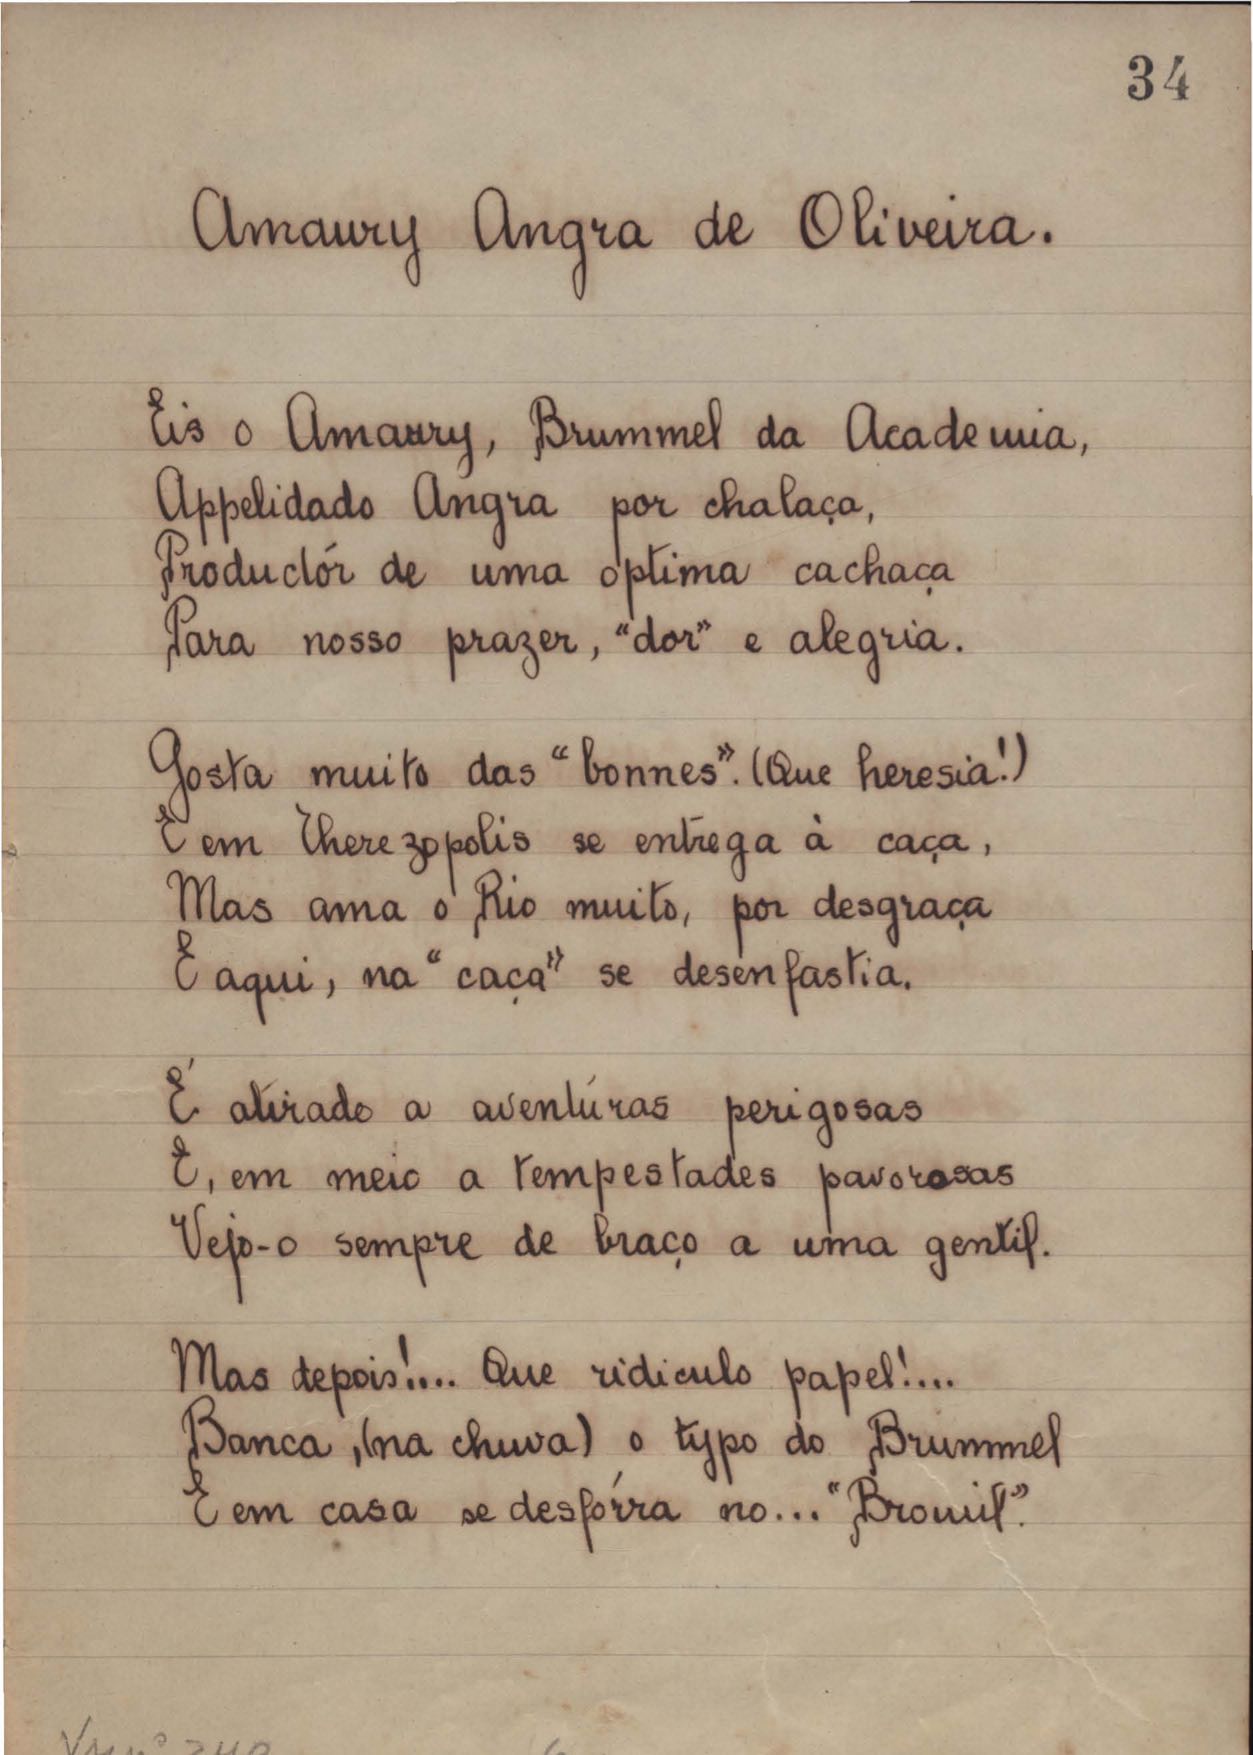 34
Amaury Angra de Oliveira.
Eis o Amaury, Brummel da Academia,
Appelidado Angra por chalaça,
Productór de uma optima cachaça
Para nosso prazer, "dor" e alegria.
Gosta muito das "bonnes". (Que heresia!)
E em Therezopolis se entrega à caça,
Mas ama o Rio muito, por desgraça
E aqui, na "caça" se desenfastia.
É atirado a aventúras perigosas
E, em meio a tempestades pavorosas
Vejo-o sempre de braço a uma gentil.
Mas depois!.... Que ridiculo papel!....
Banca, (na chuva) o typo do Brummel
E em casa se desfórra no... "Bromil".